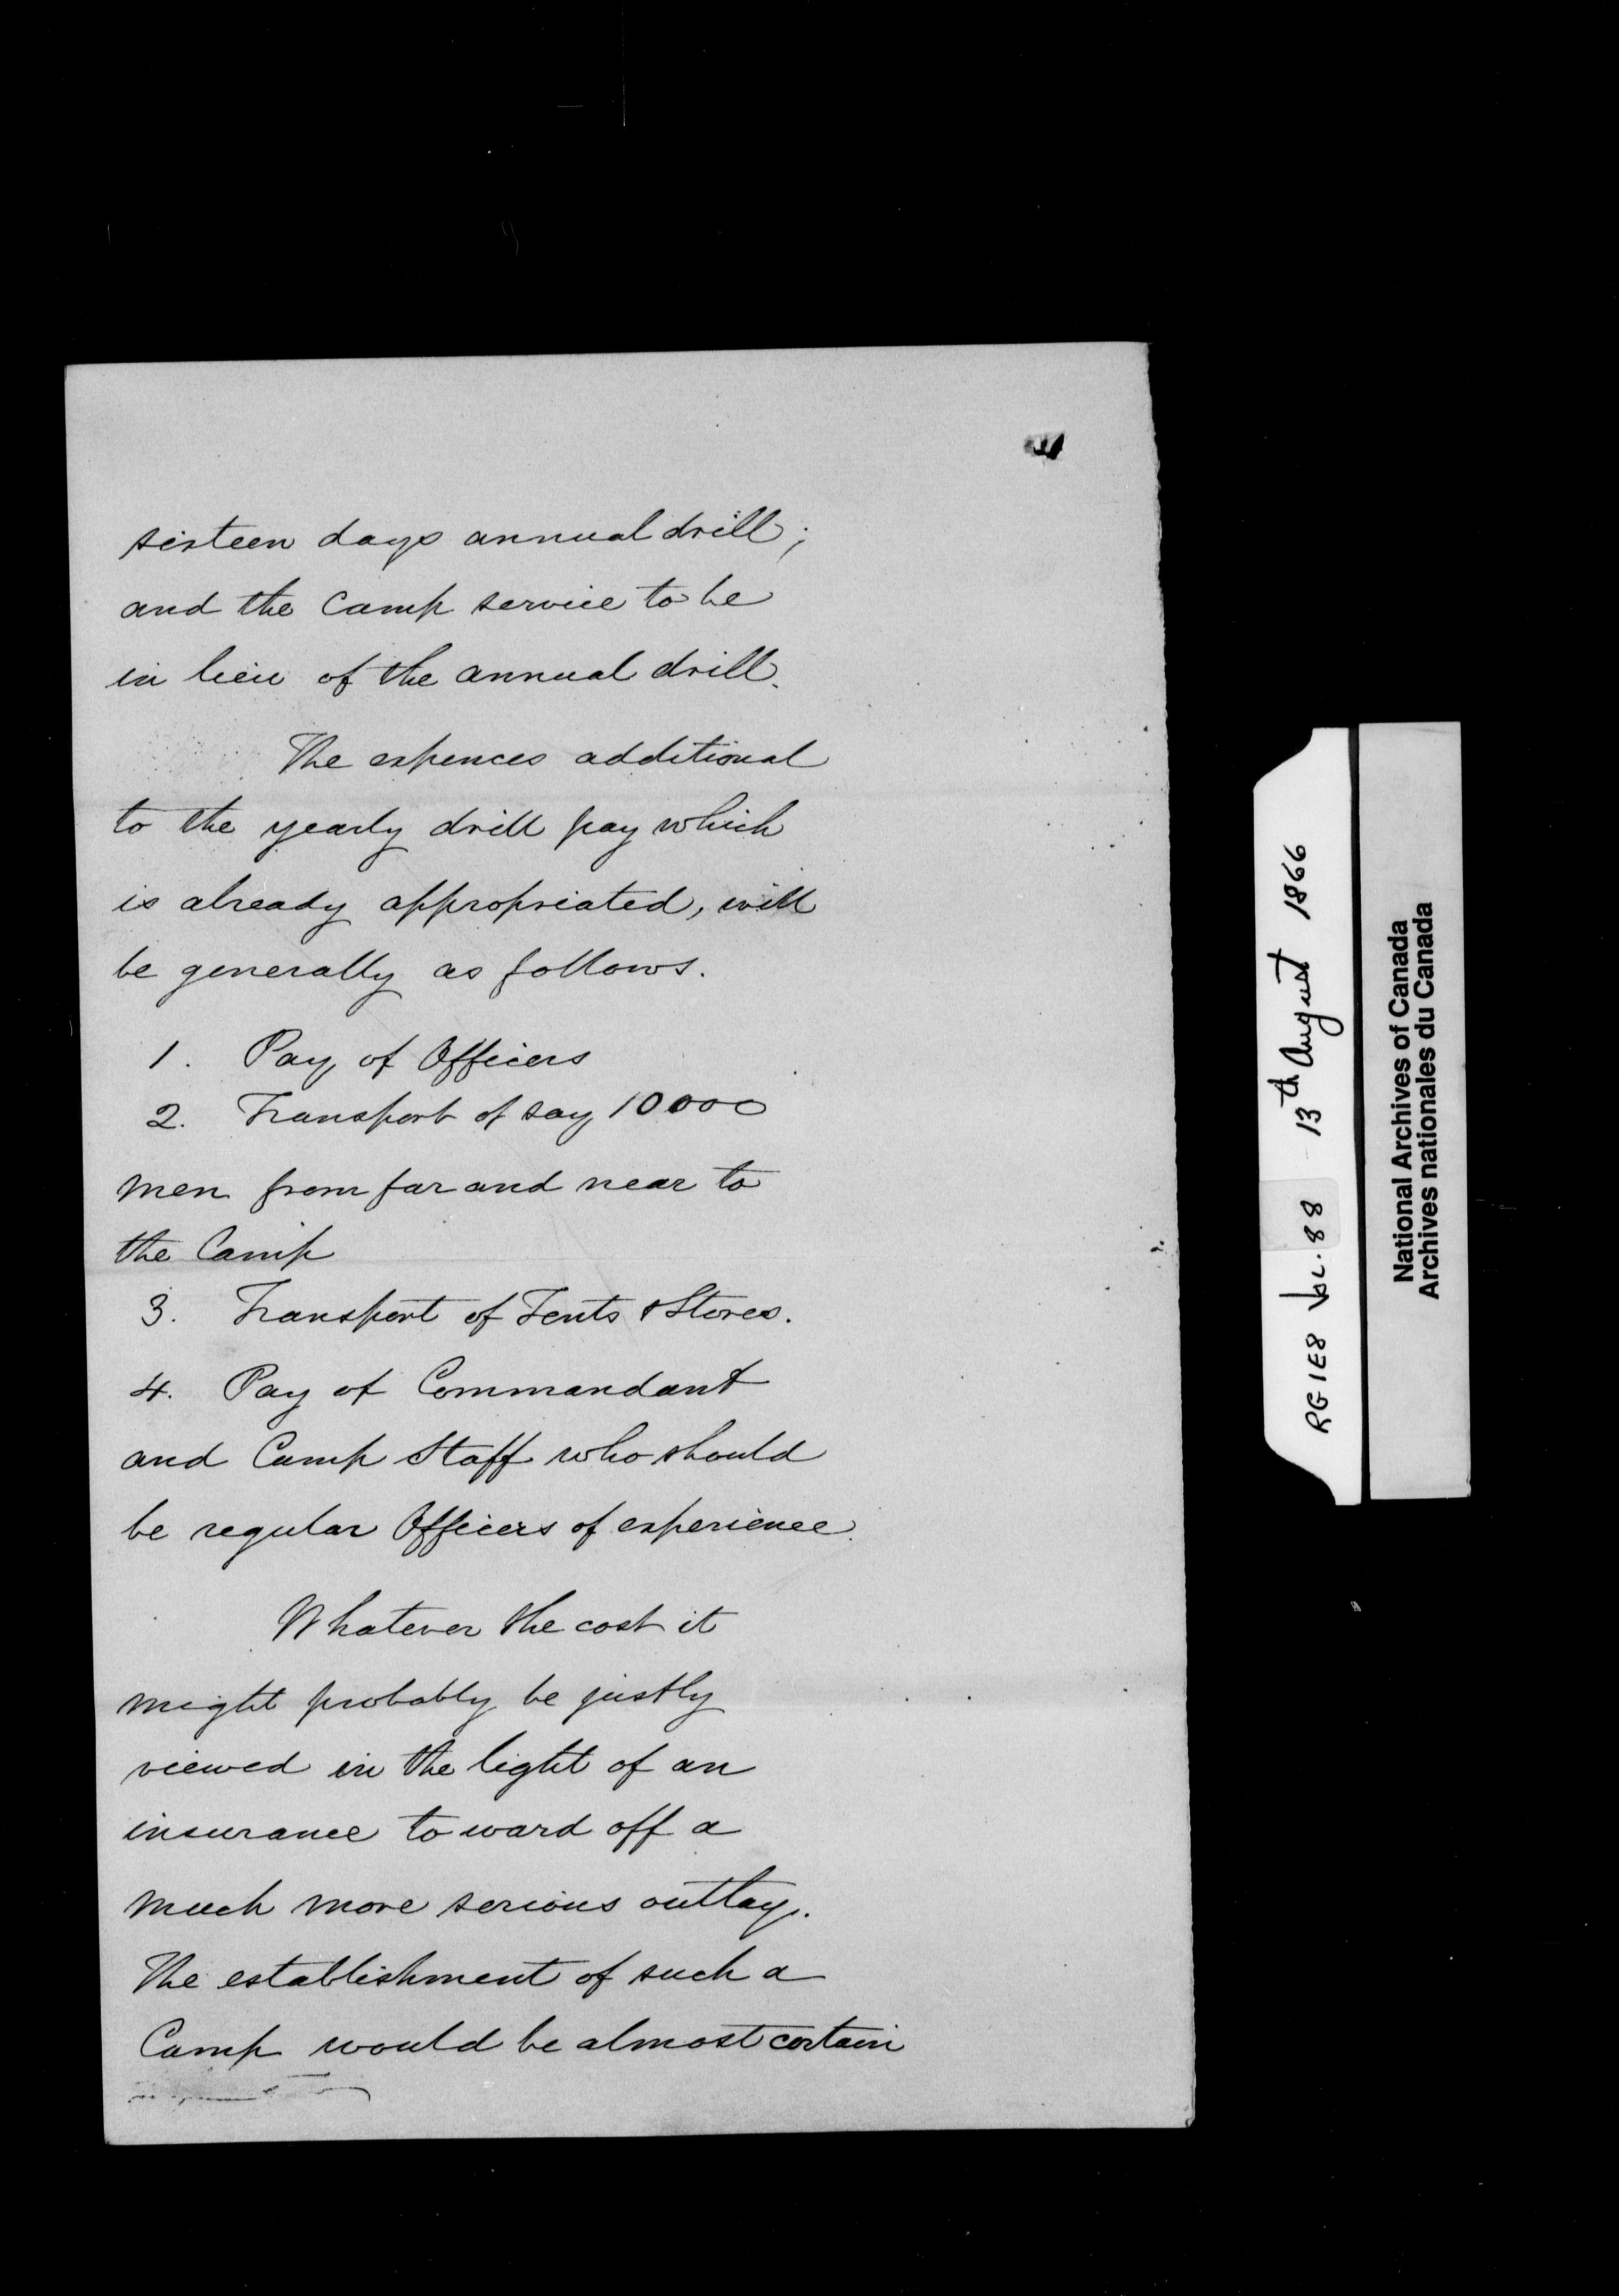 sixteen days annual drill;
and the Camp service to be
in lieu of the annual drill.
The expences additional
to the yearly drill pay which
is already appropriated, will
be generally as follows.
1. Pay of Officers
2. Transport of say 10000
men from far and near to
the Camp
3. Transport of Tents & Stores.
4. Pay of Commandant
and Camp Staff who should
be regular Officers of experience.
Whatever the cost it
might probably be justly
viewed in the light of an
insurance to ward off a
much more serious outlay.
The establishment of such a
Camp would be almost certain
RG 1E8 Vol. 88 13th August 1866
National Archives of Canada
Archives nationales du Canada